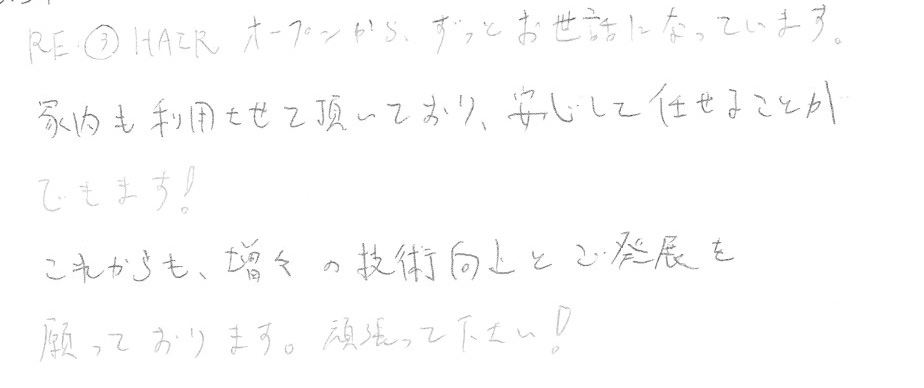 RE ③ HAIR オープンから、ずっとお世話になっています。
家内も利用させて頂いており、安心して任せることが
できます!
これからも、増々の技術向上とご発展を
願っております。頑張って下さい!